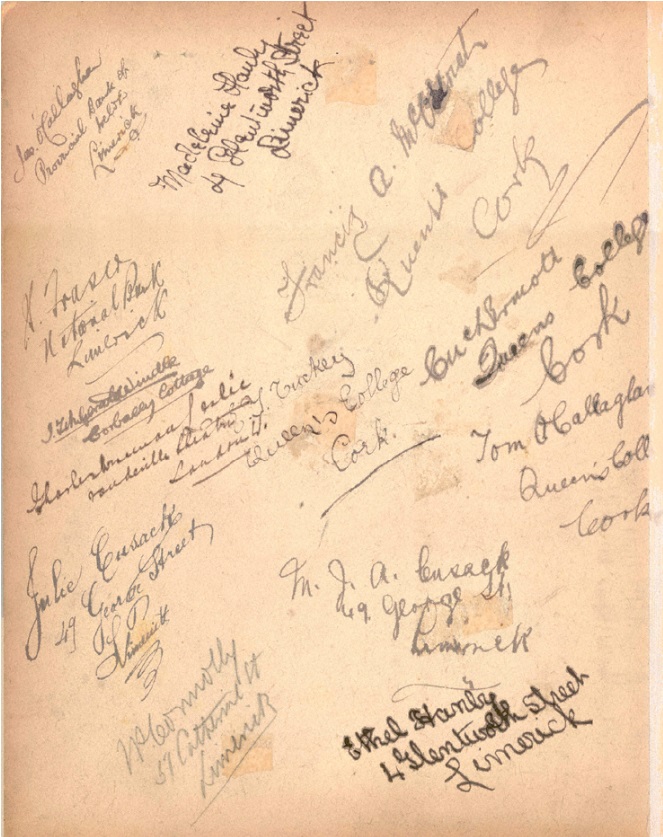 Jas. O'Callaghan
Provincial Bank of
Limerick
Madeleine Hanly
4 Glentworth Street
Limerick
Francis A. McGrath
Queens College
Cork
H. Fraser
National Bank
Limerick
Corbally Cottage
Charles
Vaudeville Theatre
London W.
Tuckey
Queen's College
Cork.
CucDermott
Queens College
Cork
Tom O'Callaghan
Queens Coll
Cork
Julie Cusack
49 George Street
Limerick
M. J. A. Cusack
49 George St.
Limerick
W Connolly
51 Catherine St
Limerick
Ethel Hanly
4 Glentworth Street
Limerick